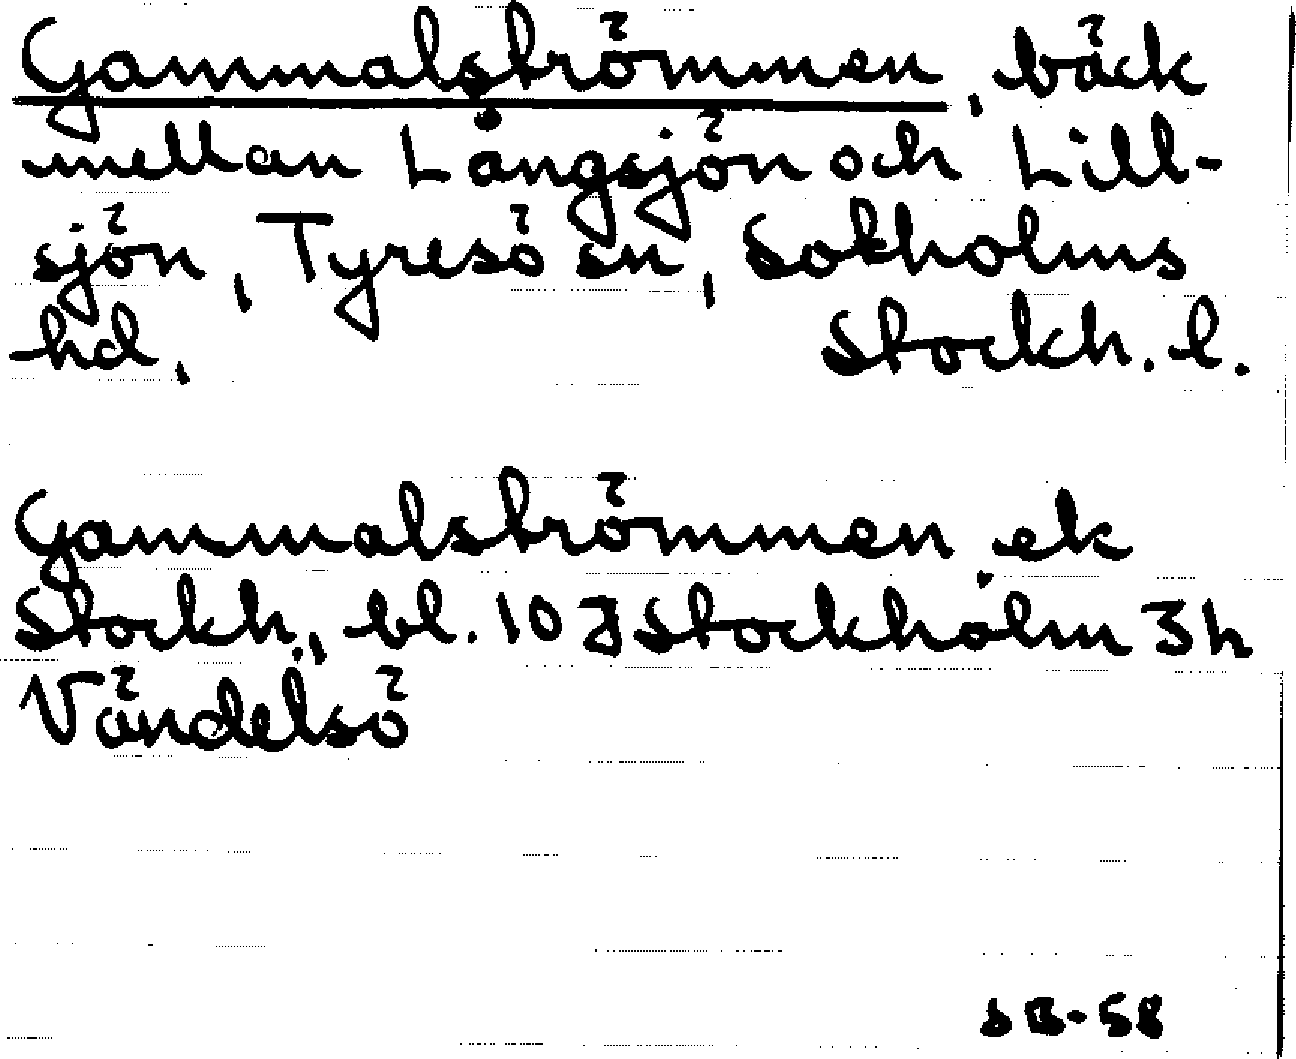 Gammalströmmen, bäck
mellan Långsjön och Lill-
sjön, Tyresö sn, Sotholms
hd, Stockh. l.
Gammalströmmen ek
Stockh., bl. 10 J Stockholm 3 h
Vändelsö
SB-58